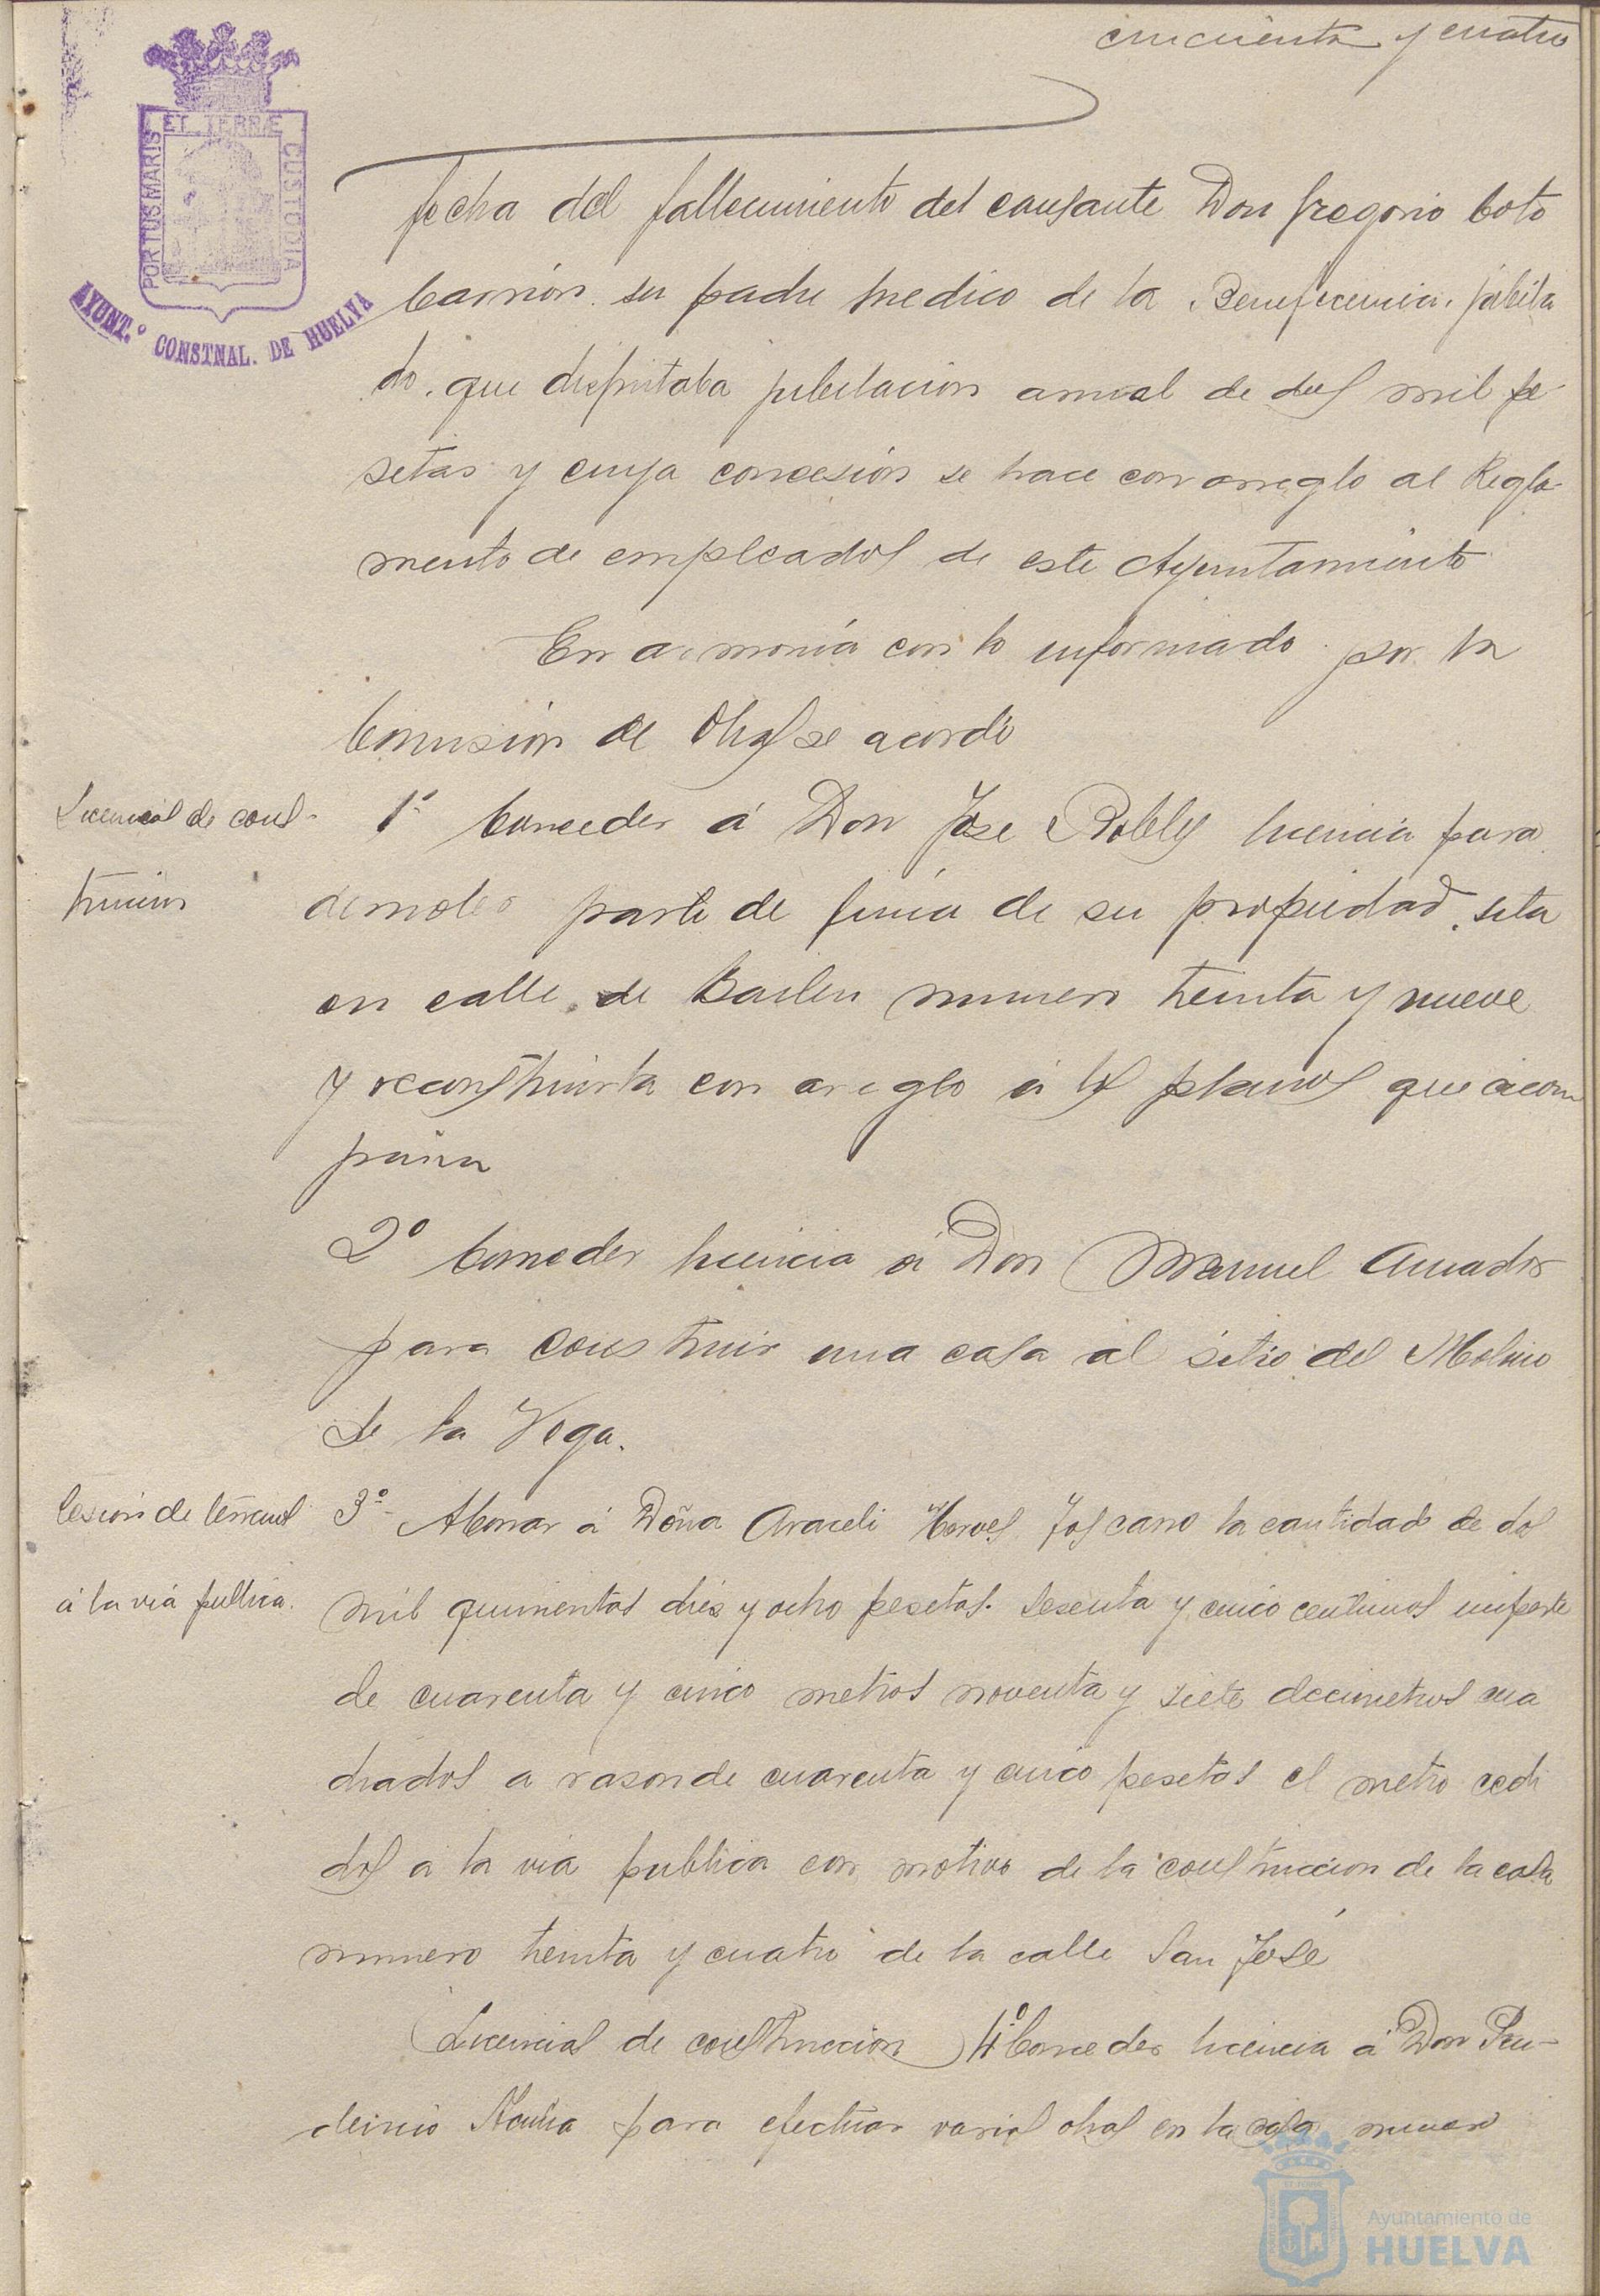 cincuenta y cuatro
ET TERRÆ
PORTUS MARIS
CUSTODIA
AYUNT.º CONSTNAL. DE HUELVA
fecha del fallecimiento del causante Don Gregorio Coto
Carrión su padre medico de la Beneficencia, jubila
do, que disfrutaba jubilacion anual de dos mil pe-
setas y cuya concesión se hace con arreglo al Regla-
mento de empleados de este Ayuntamiento
En armonía con lo informado por la
Comisión de Obras se acordó
Licencias de cons-
trucion
1º Conceder á Don Jose Robles licencia para
demoler parte de finca de su propiedad, sita
en calle de Bailen numero treinta y nueve
y reconstruirla con areglo á los planos que acom
paña
2º Conceder licencia á Don Manuel Amador
para construir una casa al sitio del Molino
de la Vega.
Cesión de terrenos
á la via publica.
3º Abonar á Doña Araceli Toscano la cantidad de dos
mil quinientas dies y ocho pesetas sesenta y cinco centimos importe
de cuarenta y cinco metros noventa y siete decimetros cua
drados a rason de cuarenta y cinco pesetas el metro cedi
dos a la via publica con motivo de la construccion de la casa
numero treinta y cuatro de la calle San José
(Licencias de construccion) 4º Conceder licencia á Don
para efectuar varias obras en la casa numero
Ayuntamiento de
HUELVA